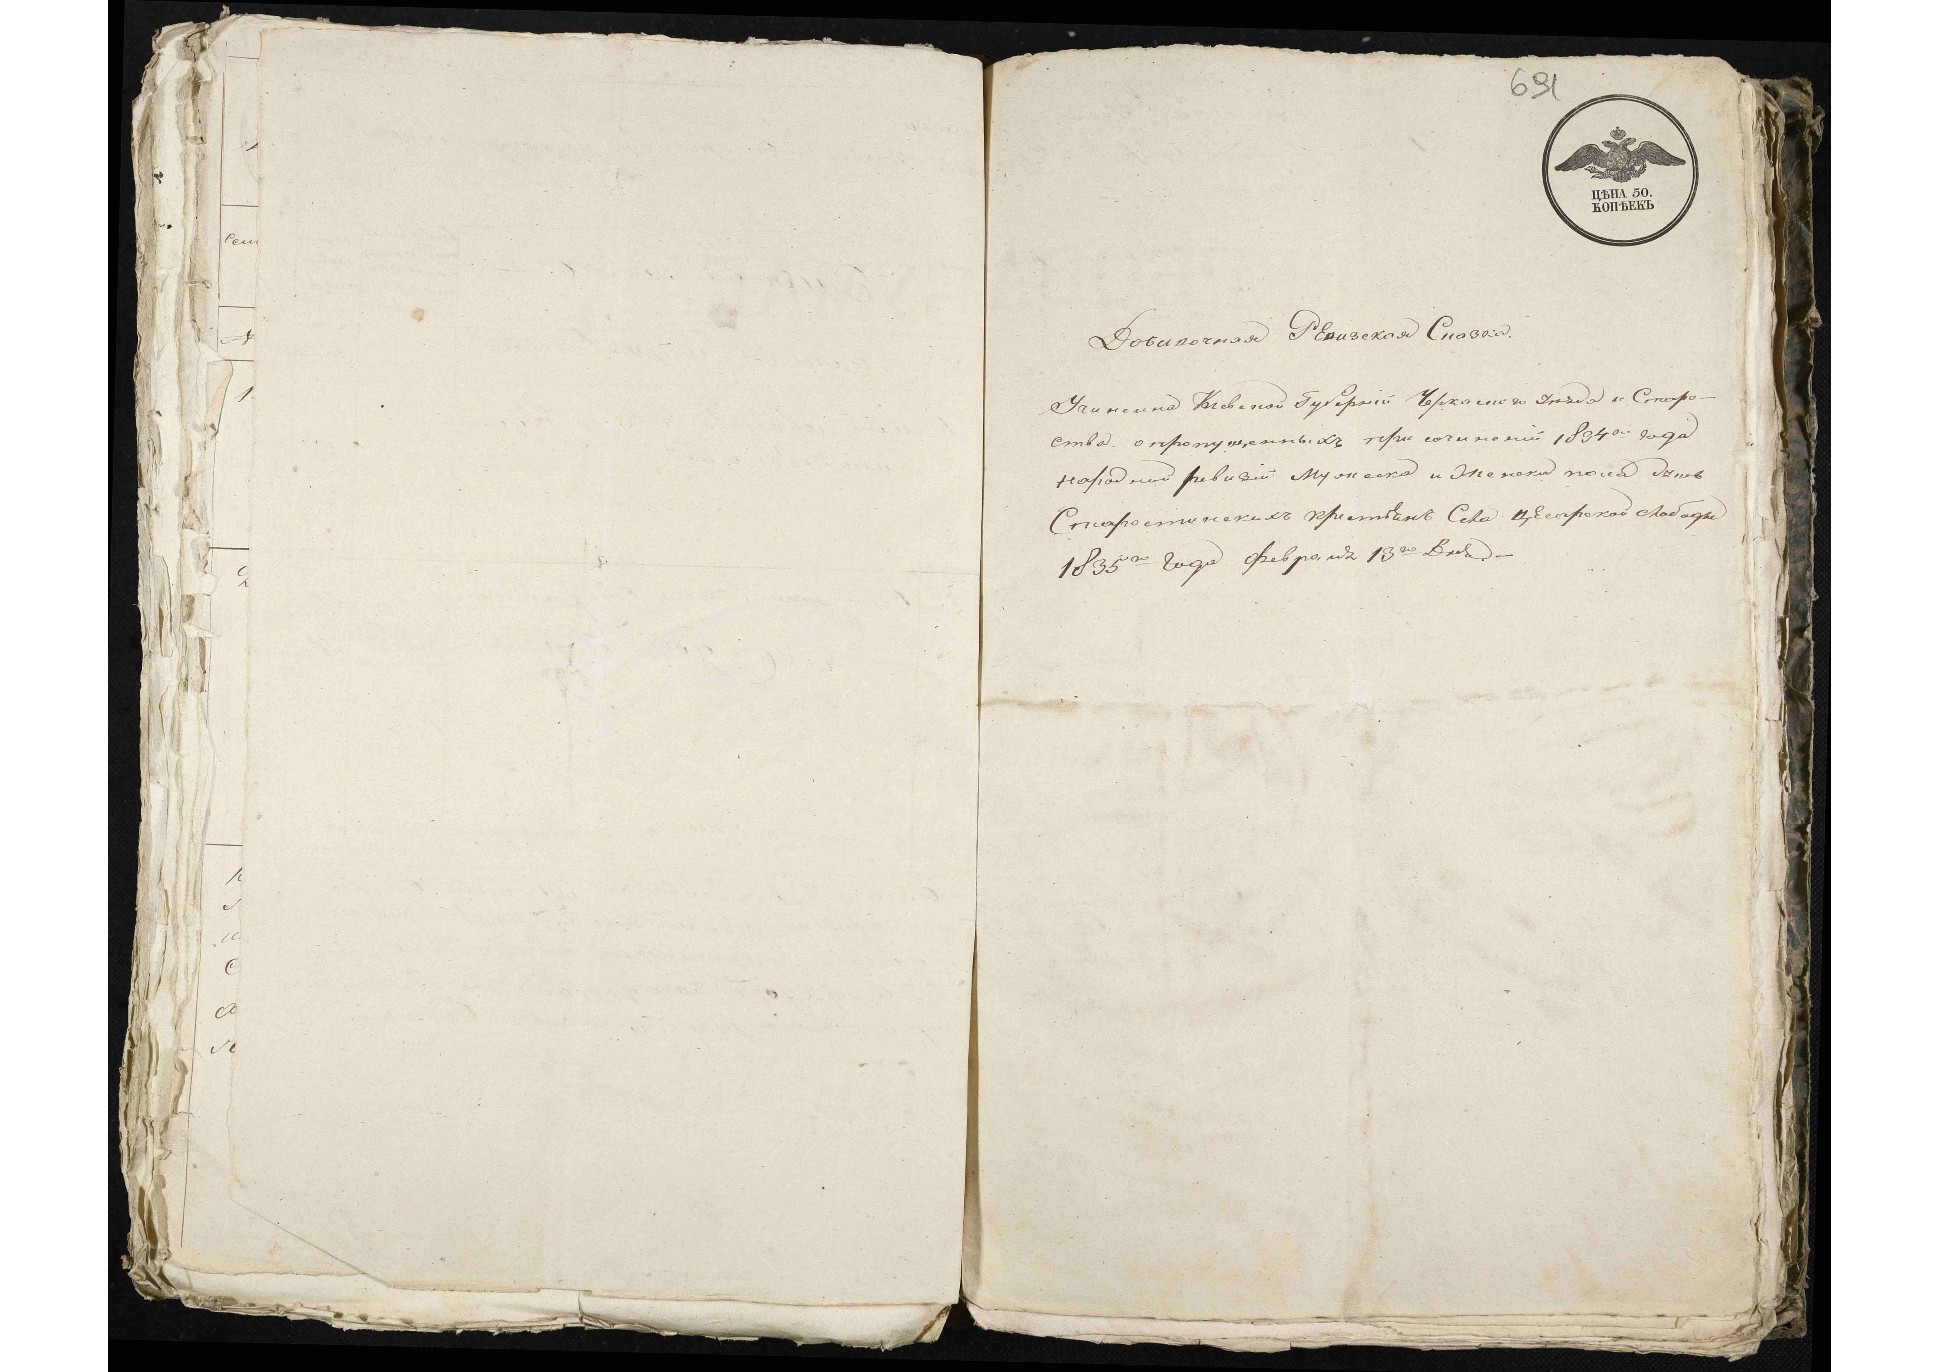 691
ЦѢНА 50.
КОПѢЕКЪ
Добавочная Ревизская Сказка.
Учинена Киевской Губерніи Черкаскаго уѣзда и Старо-
ства о пропущенныхъ при сочиненіи 1834го года
народной ревизіи Мужеска и Женска пола душъ
Старостинскихъ крестьянъ Села Цесарской слободы
1835го года февраля 13го дня